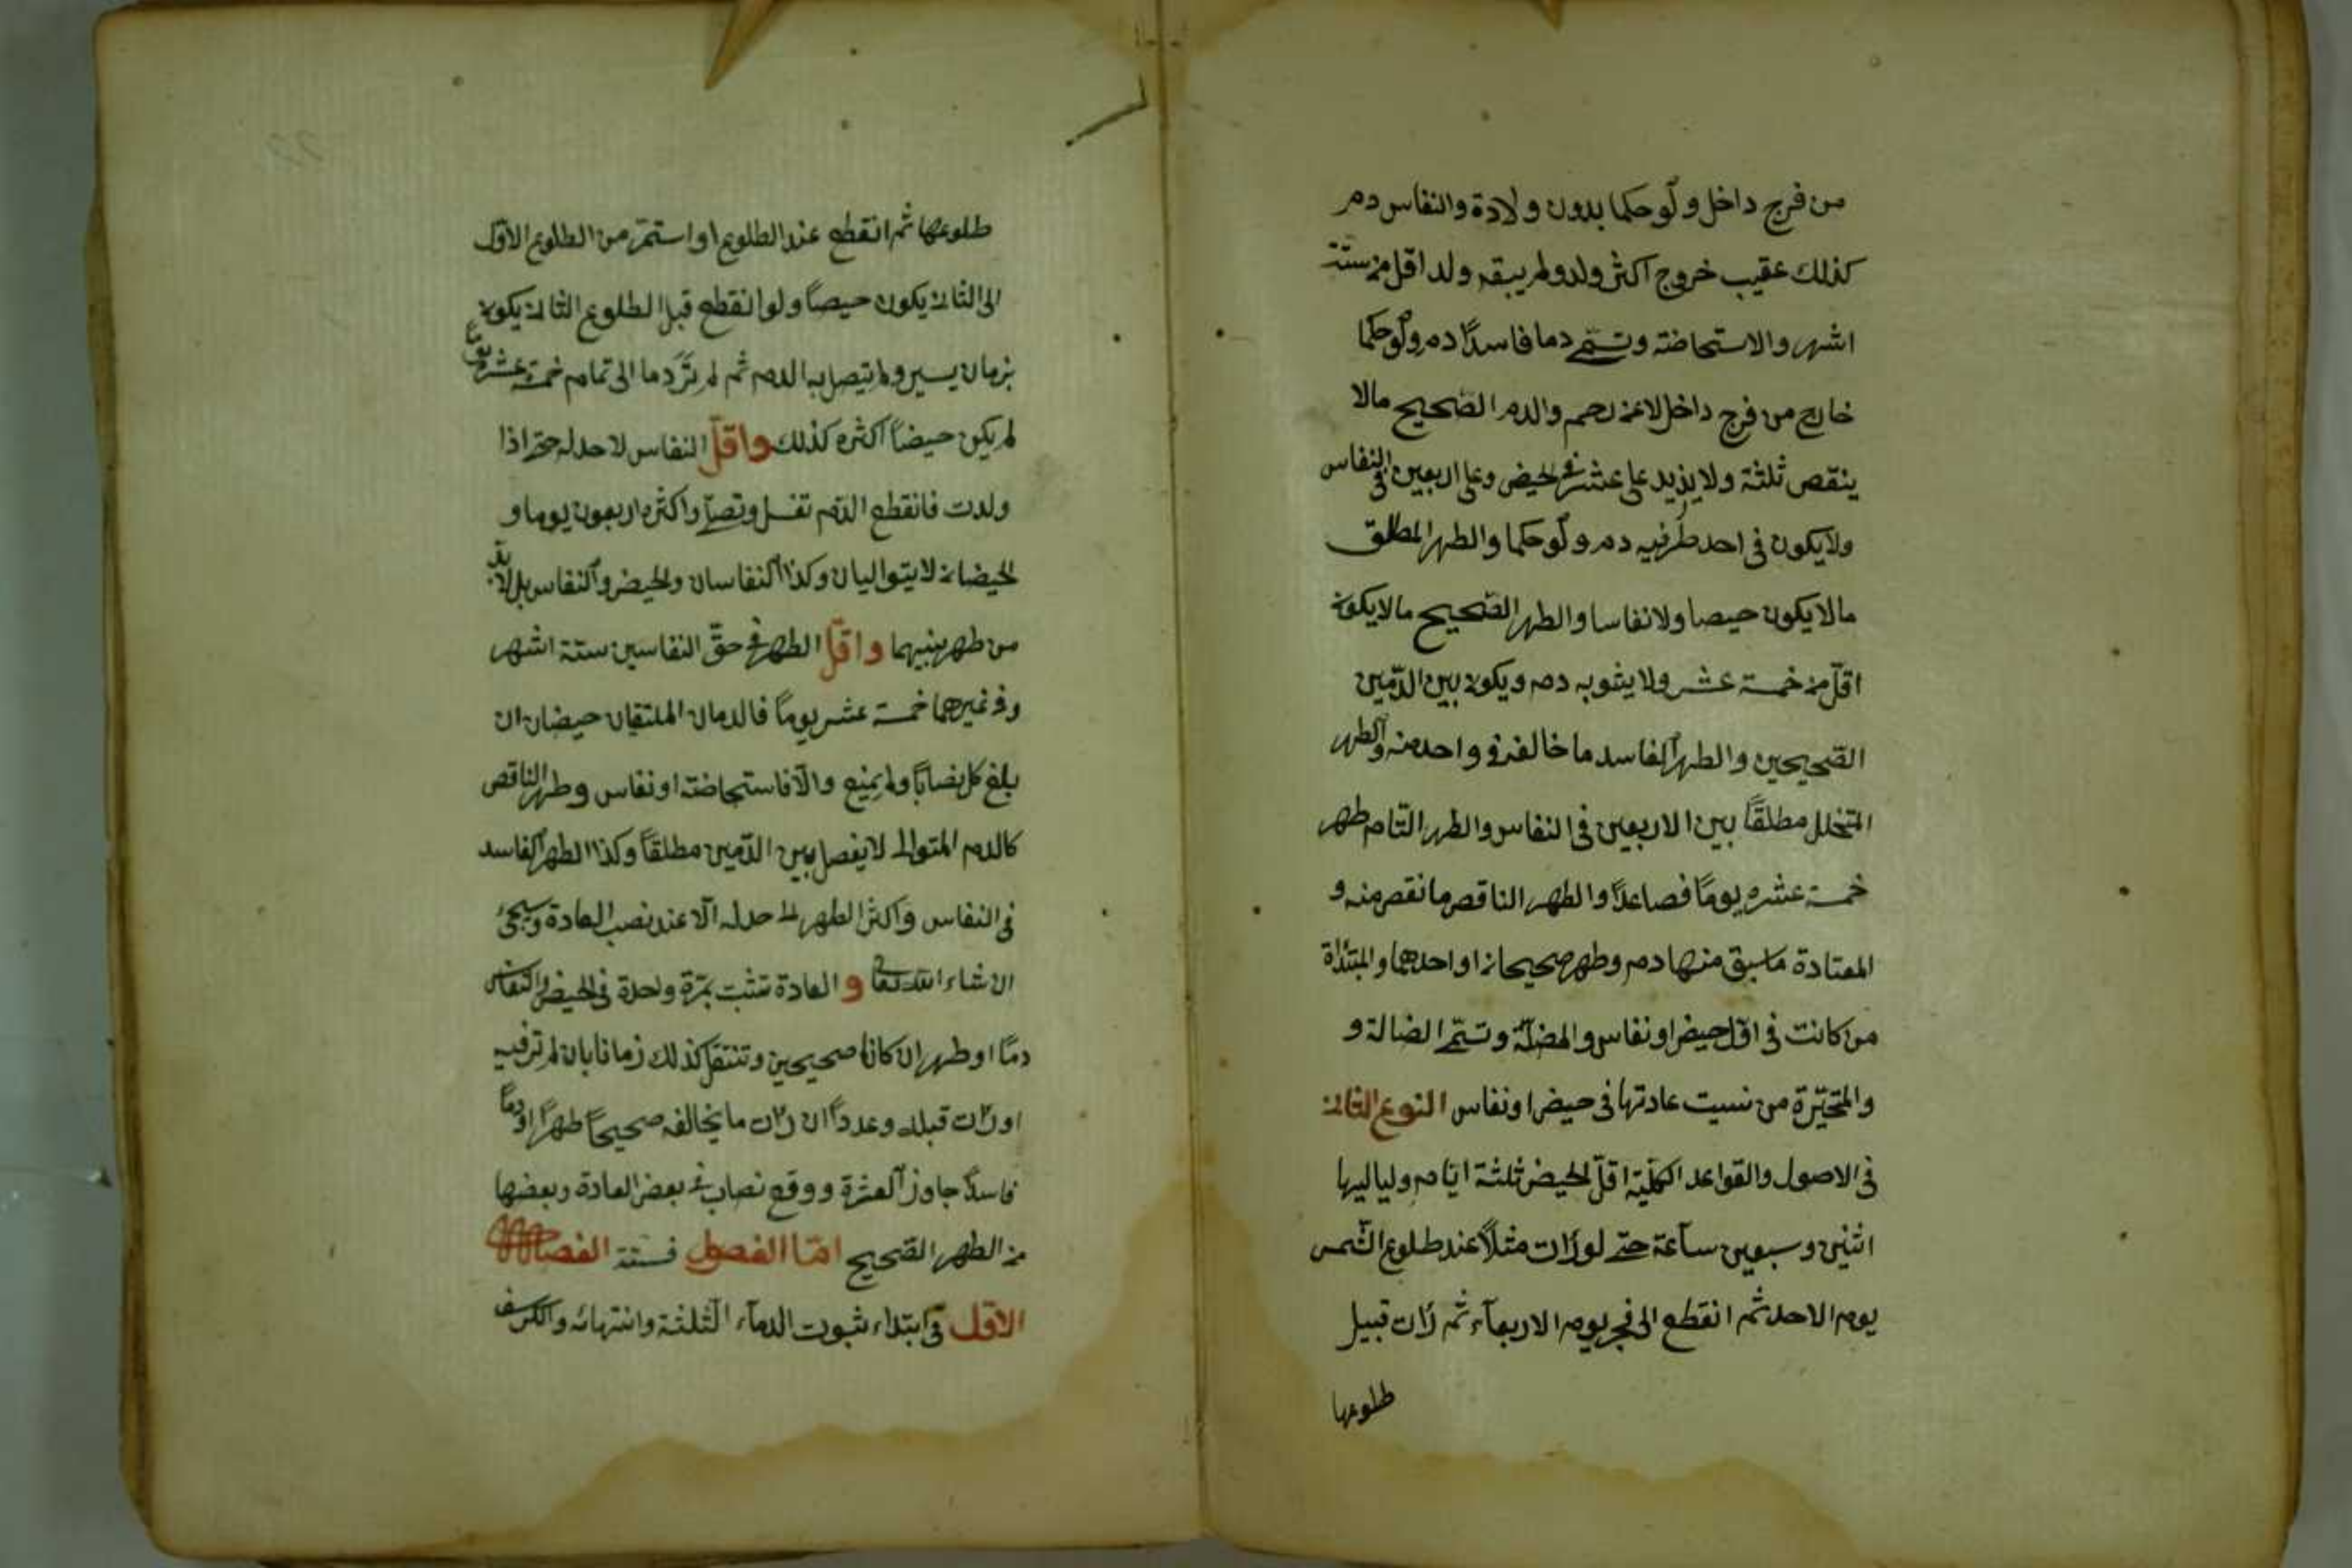 من فرج داخل ولو حكما بدون ولادة والنفاس دم
كذلك عقيب خروج اكثر ولد ولم يسبقه ولد اقل من ستة
اشهر والاستحاضة وتسمى دما فاسدًا دم ولو حكما
خارج من فرج داخل لا عن رحم والدم الصّحيح مالا
ينقص ثلثة ولا يزيد على عشرة في الحيض وعلى اربعين في النفاس
ولا يكون في احد طرفيه دم ولو حكما والطهر المطلق
مالا يكون حيضا ولا نفاسا والطهر الصّحيح مالا يكون
اقلّ من خمسة عشر ولا يشوبه دم ويكون بين الدّمين
الصّحيحين والطهر الفاسد ما خالفه في واحد منه والطهر
المتخلل مطلقًا بين الاربعين في النفاس والطهر التّام طهر
خمسة عشر يومًا فصاعدًا والطهر الناقص ما نقص منه و
المعتادة ما سبق منها دم وطهر صحيحان او احدهما والمبتدأة
من كانت في اوّل حيض او نفاس والمضلّة وتسمّى الضالة و
والمتحيّرة من نسيت عادتها في حيض او نفاس النوع الثاني
في الاصول والقواعد الكلّية اقلّ الحيض ثلثة ايّام ولياليها
اثنين وسبعين ساعة حتى لو رأت مثلًا عند طلوع الشّمس
يوم الاحد ثم انقطع الى فجر يوم الاربعآء ثم رأت قبيل
طلوعها
طلوعها ثم انقطع عند الطلوع او استمرّ من الطلوع الاوّل
الى الثاني يكون حيضًا ولو انقطع قبل الطلوع الثاني يكون
بزمان يسير ولم يتصل به الدم ثم لم تَرَ دما الى تمام خمسة عشر يومًا
لم يكن حيضًا اكثره كذلك واقلّ النفاس لا حد له حتى اذا
ولدت فانقطع الدّم تغسل وتصلّي واكثره اربعون يوما و
الحيضان لا يتواليان وكذا النفاسان والحيض والنفاس بل لا بدّ
من طهر بينهما واقلّ الطهر في حقّ النفاسين ستة اشهر
وفي غيرهما خمسة عشر يومًا فالدمان الملتقيان حيضان ان
بلغ كل نصابًا ولم يمنع والّا فاستحاضة او نفاس وطهر الناقص
كالدم المتوالي لا يفصل بين الدّمين مطلقًا وكذا الطهر الفاسد
في النفاس واكثر الطهر لا حد له الّا عند نصب العادة ويجئ
ان شاء الله تعالى و العادة تثبت بمرّة واحدة في الحيض والنفاس
دمًا او طهر ان كانا صحيحين وتنتقل كذلك زمانا بان لم تر فيه
او رأت قبله وعددًا ان رأت ما يخالفه صحيحًا طهرًا او دمًا
فاسدًا جاوز العشرة ووقع نصاب في بعض العادة وبعضها
من الطهر الصّحيح امّا الفصول فستة
الاوّل في ابتداء ثبوت الدمآء الثلثة وانتهائه والكرسف